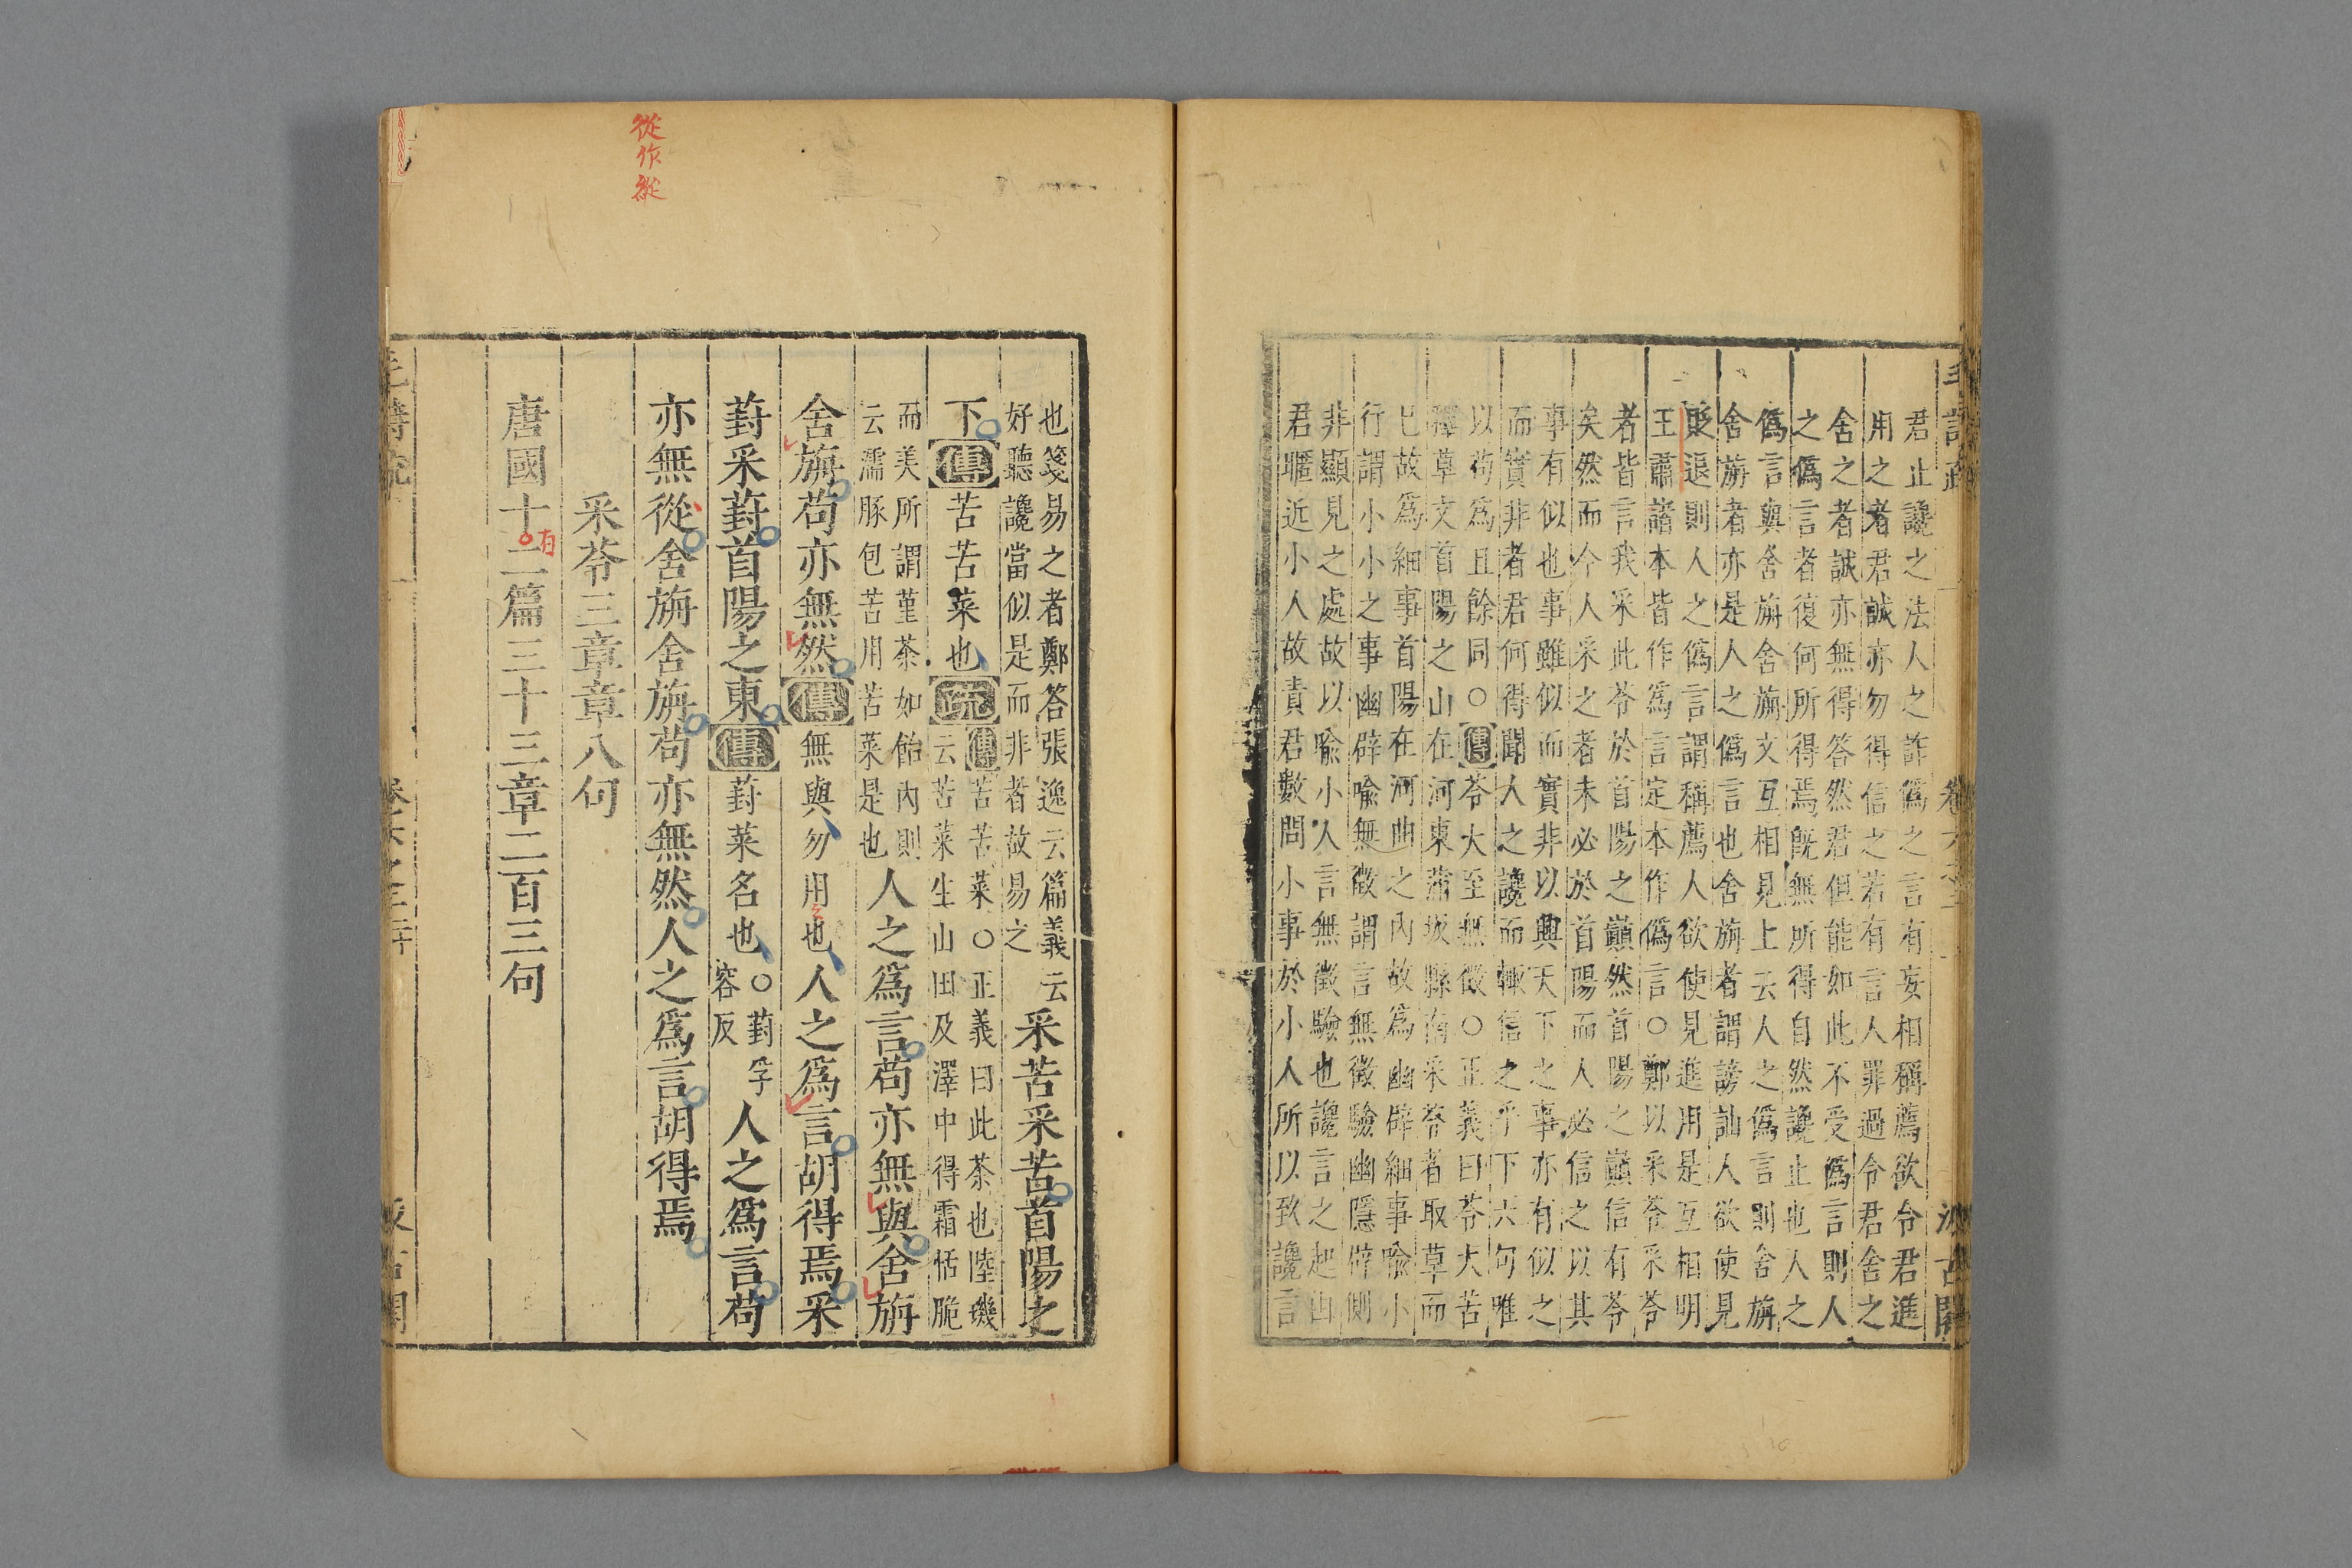 毛詩疏 卷六之三 汲古閣
君止讒之法人之詐僞之言有妄相稱薦欲令君進
用之者君誠亦勿得信之若有言人罪過令君舍之
舍之者誠亦無得答然君但能如此不受僞言則人
之僞言者復何所得焉旣無所得自然讒止也人之
僞言與舍旃舍旃文互相見上云人之僞言則舍旃
舍旃者亦是人之僞言也舍旃者謂謗訕人欲使見
貶退則人之僞言謂稱薦人欲使見進用是互相明
王肅諸本皆作爲言定本作僞言○鄭以采苓采苓
者皆言我采此苓於首陽之巓然首陽之巓信有苓
矣然而今人采之者未必於首陽而人必信之以其
事有似也事雖似而實非以興天下之事亦有似之
而實非者君何得聞人之讒而輒信之乎下六句唯
以苟爲且餘同○傳苓大至無徵○正義曰苓大苦
釋草文首陽之山在河東蒲坂縣南采苓者取草而
已故爲細事首陽在河曲之內故爲幽辟細事喻小
行謂小小之事幽辟喻無徵謂言無徵驗幽隱辟側
非顯見之處故以喻小人言無徵驗也讒言之起由
君暱近小人故責君數問小事於小人所以致讒言
也箋易之者鄭答張逸云篇義云
好聽讒當似是而非者故易之
采苦采苦首陽之
下傳苦苦菜也疏
傳苦苦菜○正義曰此荼也陸璣
云苦菜生山田及澤中得霜恬脆
而美所謂堇荼如飴內則
云濡豚包苦用苦菜是也
人之爲言苟亦無與舍旃
舍旃苟亦無然傳無與勿用也人之爲言胡得焉采
葑采葑首陽之東傳葑菜名也
○葑孚
容反
人之爲言苟
亦無從舍旃舍旃苟亦無然人之爲言胡得焉
從作從
采苓三章章八句
唐國十二篇三十三章二百三句
有
毛詩疏 卷六之三 汲古閣